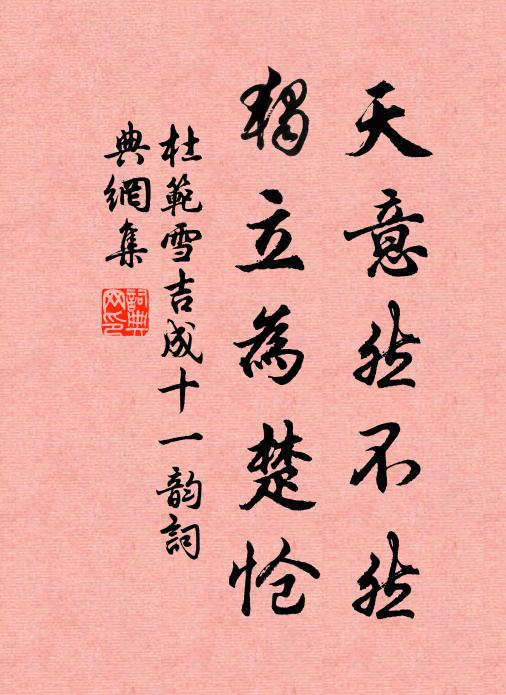 天意然不然
獨立為楚怆
杜範雪吉成十一韵詞
典網集
詞典网印